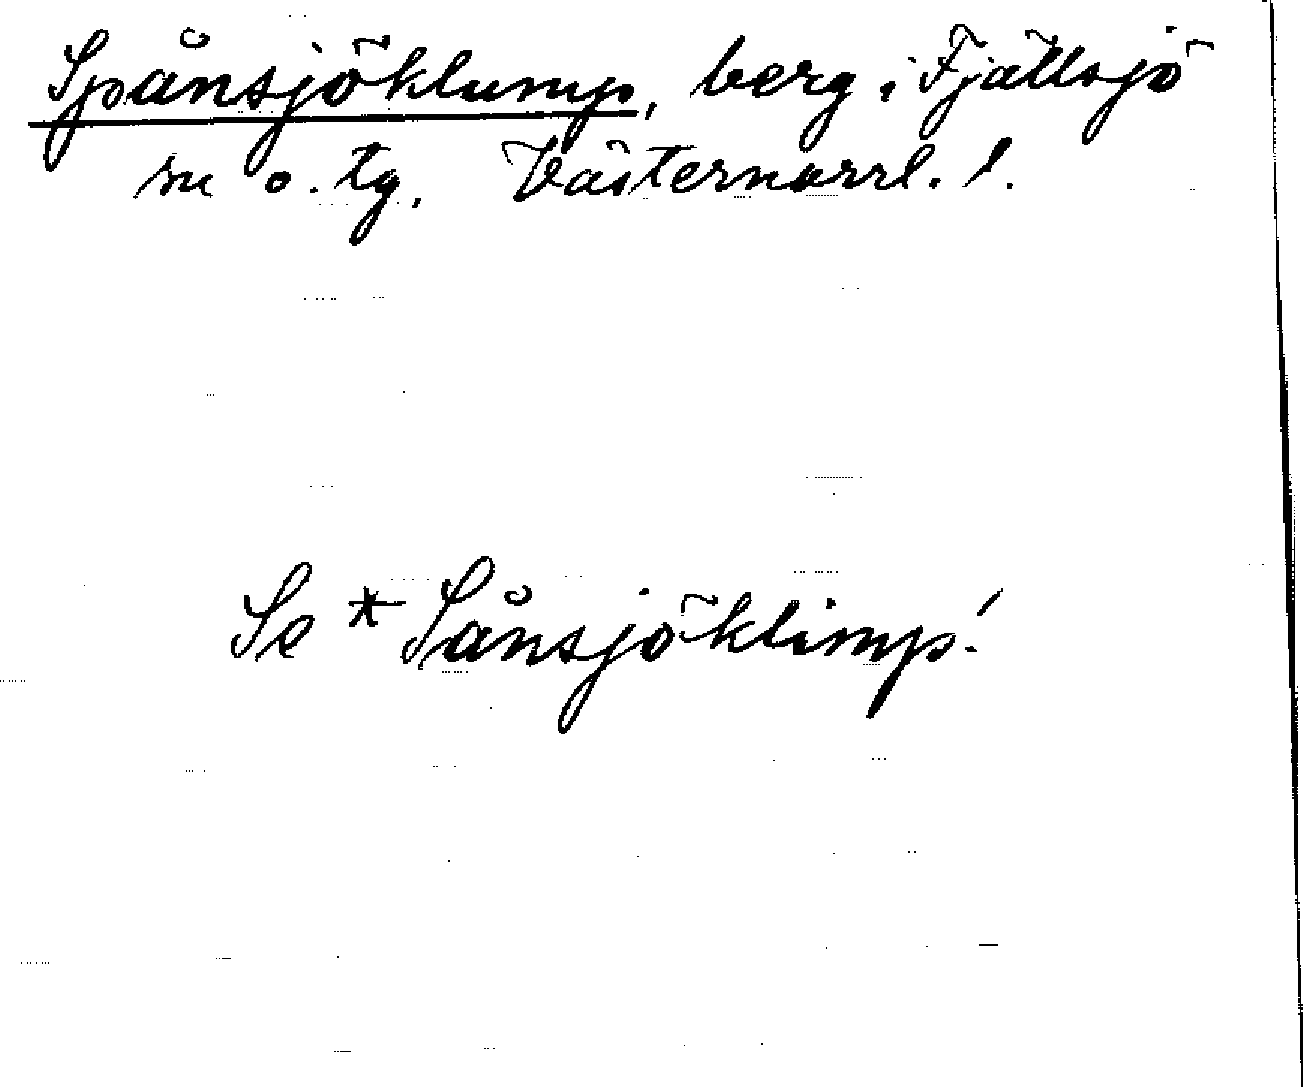 Spånsjöklump, berg i Fjällsjö
sn o. tg, Västernorrl. l.
Se * Sånsjöklimp!